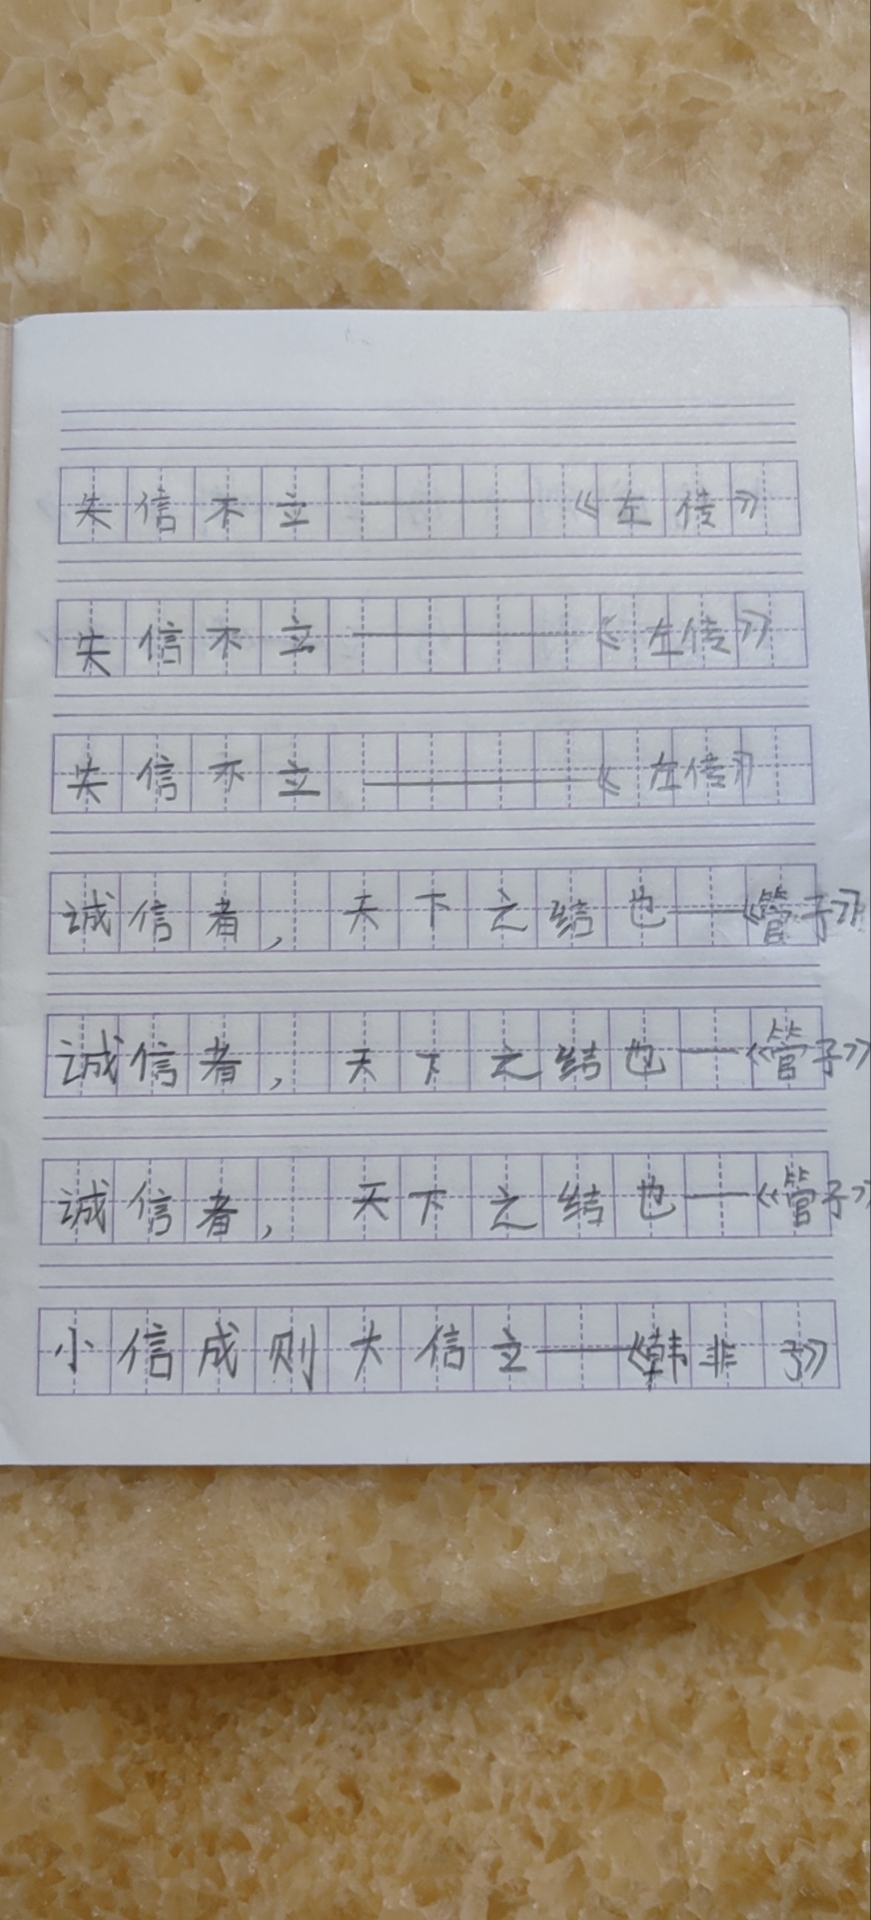 失信不立————《左传》
失信不立————《左传》
失信不立————《左传》
诚信者，天下之结也——《管子》
诚信者，天下之结也——《管子》
诚信者，天下之结也——《管子》
小信成则大信立——《韩非子》